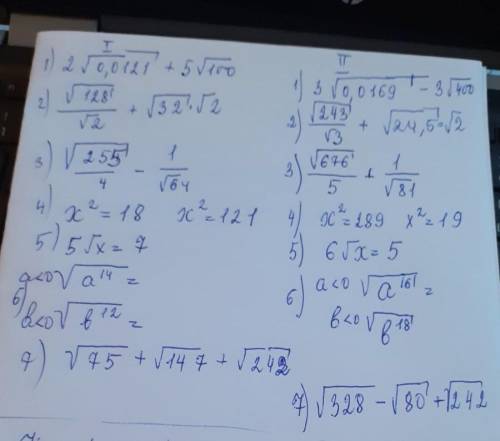 I
1) 2√0,0121 + 5√100
2) √128/√2 + √32·√2
3) √255/4 − 1/√64
4) x²=18 x²=121
5) 5√x = 7
6) a<0 √a¹⁴ =
b<0 √b¹² =
7) √75 + √147 + √242
II
1) 3√0,0169 − 3√400
2) √243/√3 + √24,5·√2
3) √676/5 + 1/√81
4) x²=289 x²=19
5) 6√x = 5
6) a<0 √a¹⁶ =
b<0 √b¹⁸
7) √328 − √80 + √242